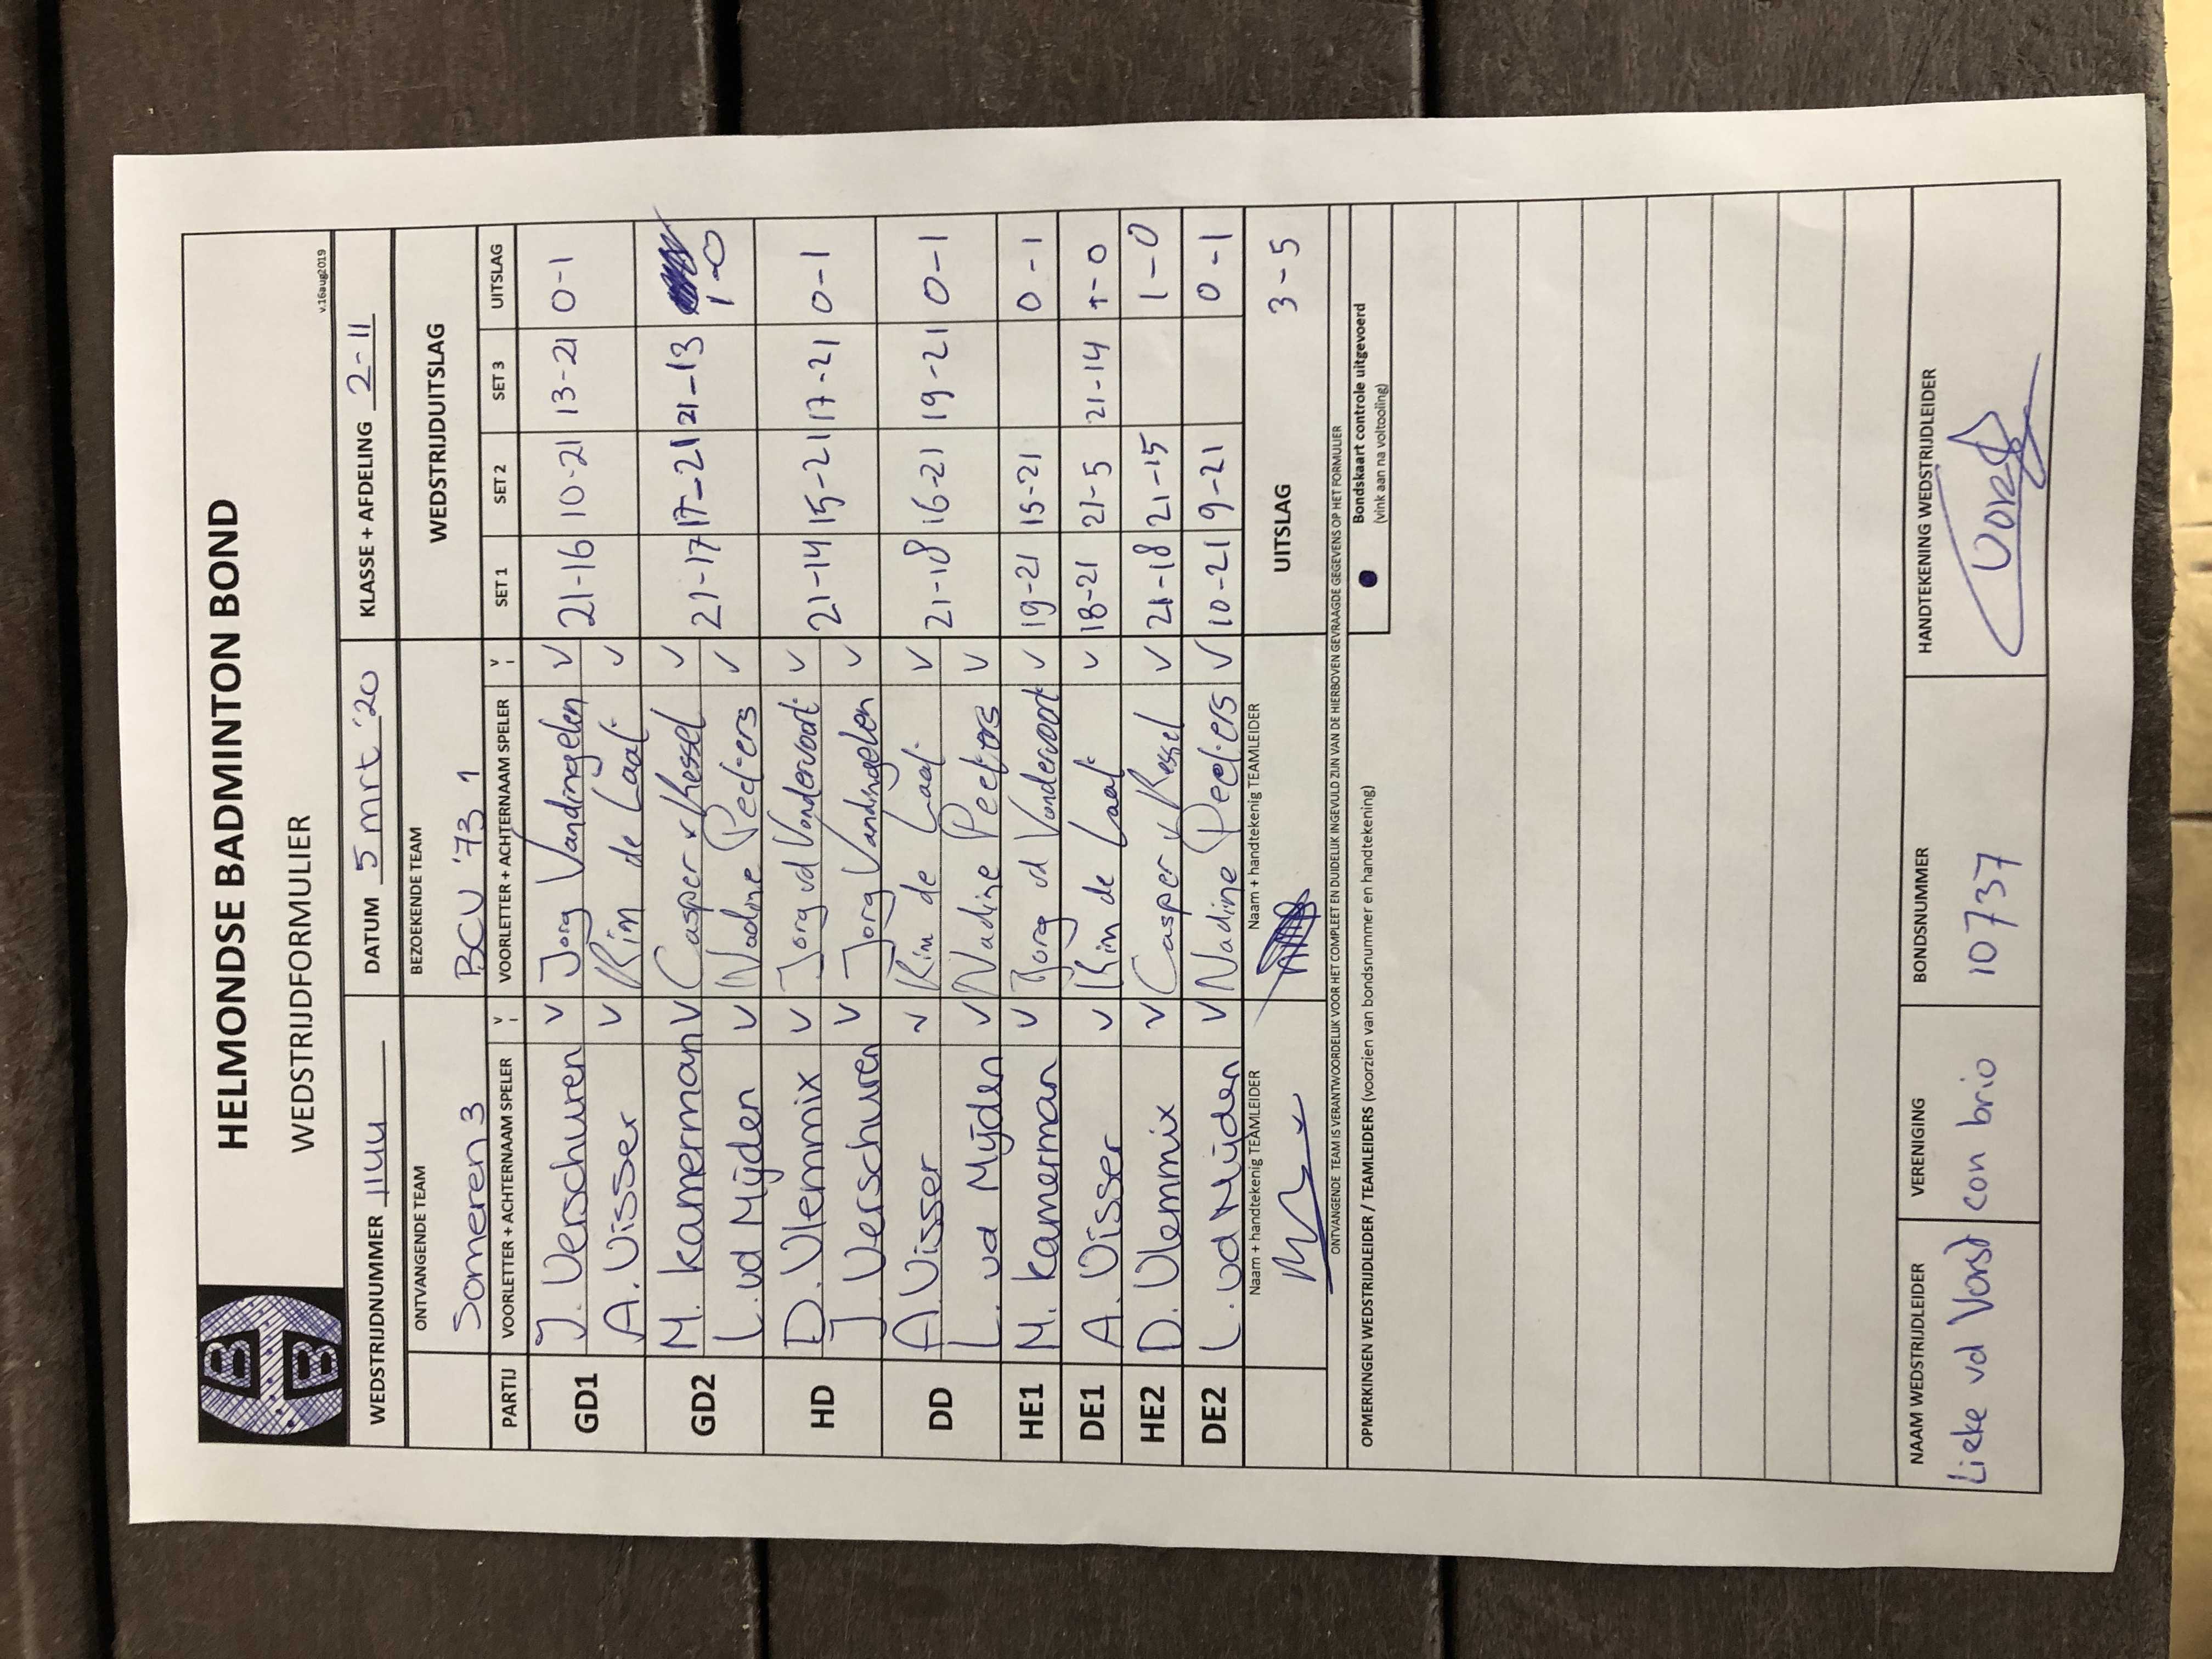 HELMONDSE BADMINTON BOND
WEDSTRIJDFORMULIER
v.16aug2019
WEDSTRIJDNUMMER 1144 DATUM 5 mrt '20 KLASSE + AFDELING 2-11
ONTVANGENDE TEAM BEZOEKENDE TEAM WEDSTRIJDUITSLAG
Someren 3 BCU '73 1
PARTIJ VOORLETTER + ACHTERNAAM SPELER V VOORLETTER + ACHTERNAAM SPELER V SET 1 SET 2 SET 3 UITSLAG
GD1 J. Verschuren v Jorg Vandingelen v 21-16 10-21 13-21 0-1
A. Visser v Kim de Laat v
GD2 M. Kamerman v Casper v Kessel v 21-17 17-21 21-13 1-0
L. vd Mijden v Nadine Peeters v
HD D. Vlemmix v Jorg vd Vondervoort v 21-14 15-21 17-21 0-1
J. Verschuren v Jorg Vandingelen v
DD A. Visser v Kim de Laat v 21-18 16-21 19-21 0-1
L. vd Mijden v Nadine Peeters v
HE1 M. Kamerman v Jorg vd Vondervoort v 19-21 15-21 0-1
DE1 A. Visser v Kim de Laat v 18-21 21-5 21-14 1-0
HE2 D. Vlemmix v Casper v Kessel v 21-18 21-15 1-0
DE2 L. vd Mijden v Nadine Peeters v 10-21 9-21 0-1
Naam + handtekenig TEAMLEIDER Naam + handtekenig TEAMLEIDER UITSLAG 3-5
ONTVANGENDE TEAM IS VERANTWOORDELIJK VOOR HET COMPLEET EN DUIDELIJK INGEVULD ZIJN VAN DE HIERBOVEN GEVRAAGDE GEGEVENS OP HET FORMULIER
OPMERKINGEN WEDSTRIJDLEIDER / TEAMLEIDERS (voorzien van bondsnummer en handtekening)
Bondskaart controle uitgevoerd
(vink aan na voltooiing)
NAAM WEDSTRIJDLEIDER VERENIGING BONDSNUMMER HANDTEKENING WEDSTRIJDLEIDER
Lieke vd Vorst con brio 10737 Vorst